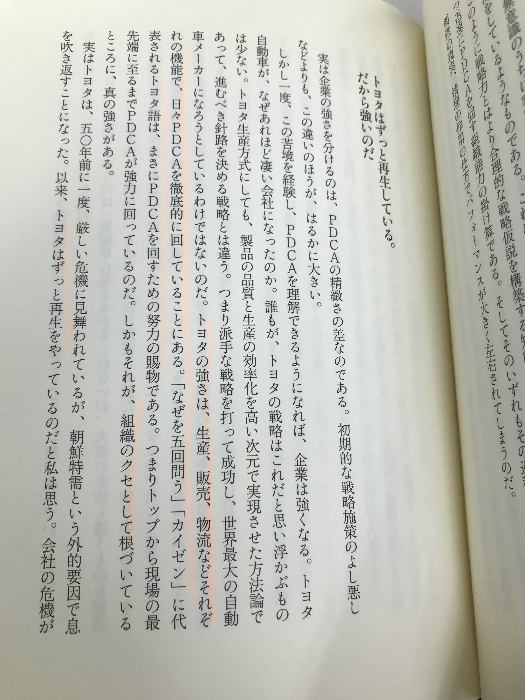 このように戦略力とはより合理的な戦略仮説を構築する
トヨタはずっと再生している。
だから強いのだ
実は企業の強さを分けるのは、PDCAの精緻さの差なのである。初期的な戦略施策のよし悪し
などよりも、この違いのほうが、はるかに大きい。
しかし一度、この苦境を経験し、PDCAを理解できるようになれば、企業は強くなる。トヨタ
自動車が、なぜあれほど凄い会社になったのか。誰もが、トヨタの戦略はこれだと思い浮かぶもの
は少ない。トヨタ生産方式にしても、製品の品質と生産の効率化を高い次元で実現させた方法論で
あって、進むべき針路を決める戦略とは違う。つまり派手な戦略を打って成功し、世界最大の自動
車メーカーになろうとしているわけではないのだ。トヨタの強さは、生産、販売、物流などそれぞ
れの機能で、日々PDCAを徹底的に回していることにある。「なぜを五回問う」「カイゼン」に代
表されるトヨタ語は、まさにPDCAを回すための努力の賜物である。つまりトップから現場の最
先端に至るまでPDCAが強力に回っているのだ。しかもそれが、組織のクセとして根づいている
ところに、真の強さがある。
実はトヨタは、五〇年前に一度、厳しい危機に見舞われているが、朝鮮特需という外的要因で息
を吹き返すことになった。以来、トヨタはずっと再生をやっているのだと私は思う。会社の危機が